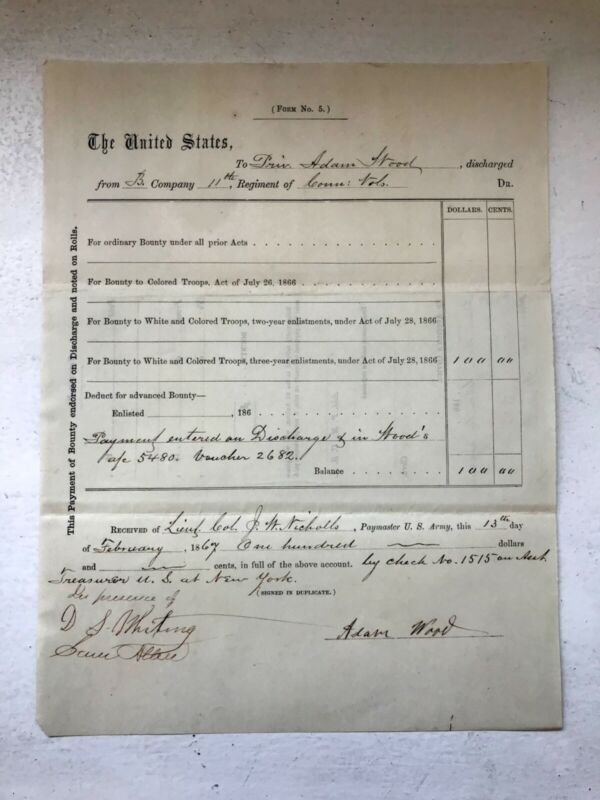 (Form No. 5.)
The United States,
To Priv. Adam Wood, discharged
from B. Company 11th, Regiment of Conn: Vols. Dr.
DOLLARS. CENTS.
For ordinary Bounty under all prior Acts
For Bounty to Colored Troops, Act of July 26, 1866
For Bounty to White and Colored Troops, two-year enlistments, under Act of July 28, 1866
For Bounty to White and Colored Troops, three-year enlistments, under Act of July 28, 1866 100 00
Deduct for advanced Bounty—
Enlisted , 186
Payment entered on Discharge & in Wood's
a/c 5480. Voucher 2682.
Balance 100 00
This Payment of Bounty endorsed on Discharge and noted on Rolls.
Received of Lieut. Col. J. W. Nicholls, Paymaster U. S. Army, this 13th day
of February, 1867 One hundred dollars
and cents, in full of the above account. by check No. 1515 on Asst.
Treasurer U. S. at New York.
(SIGNED IN DUPLICATE.)
In presence of
D S. Whiting
Adam Wood